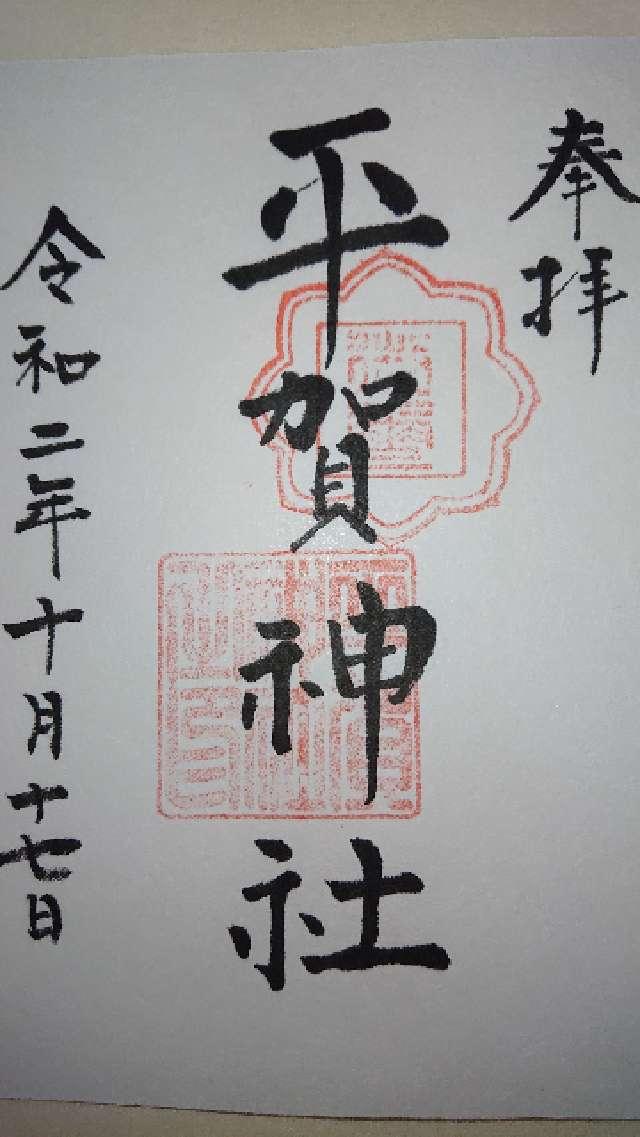 奉拝
平賀神社
令和二年十月十七日